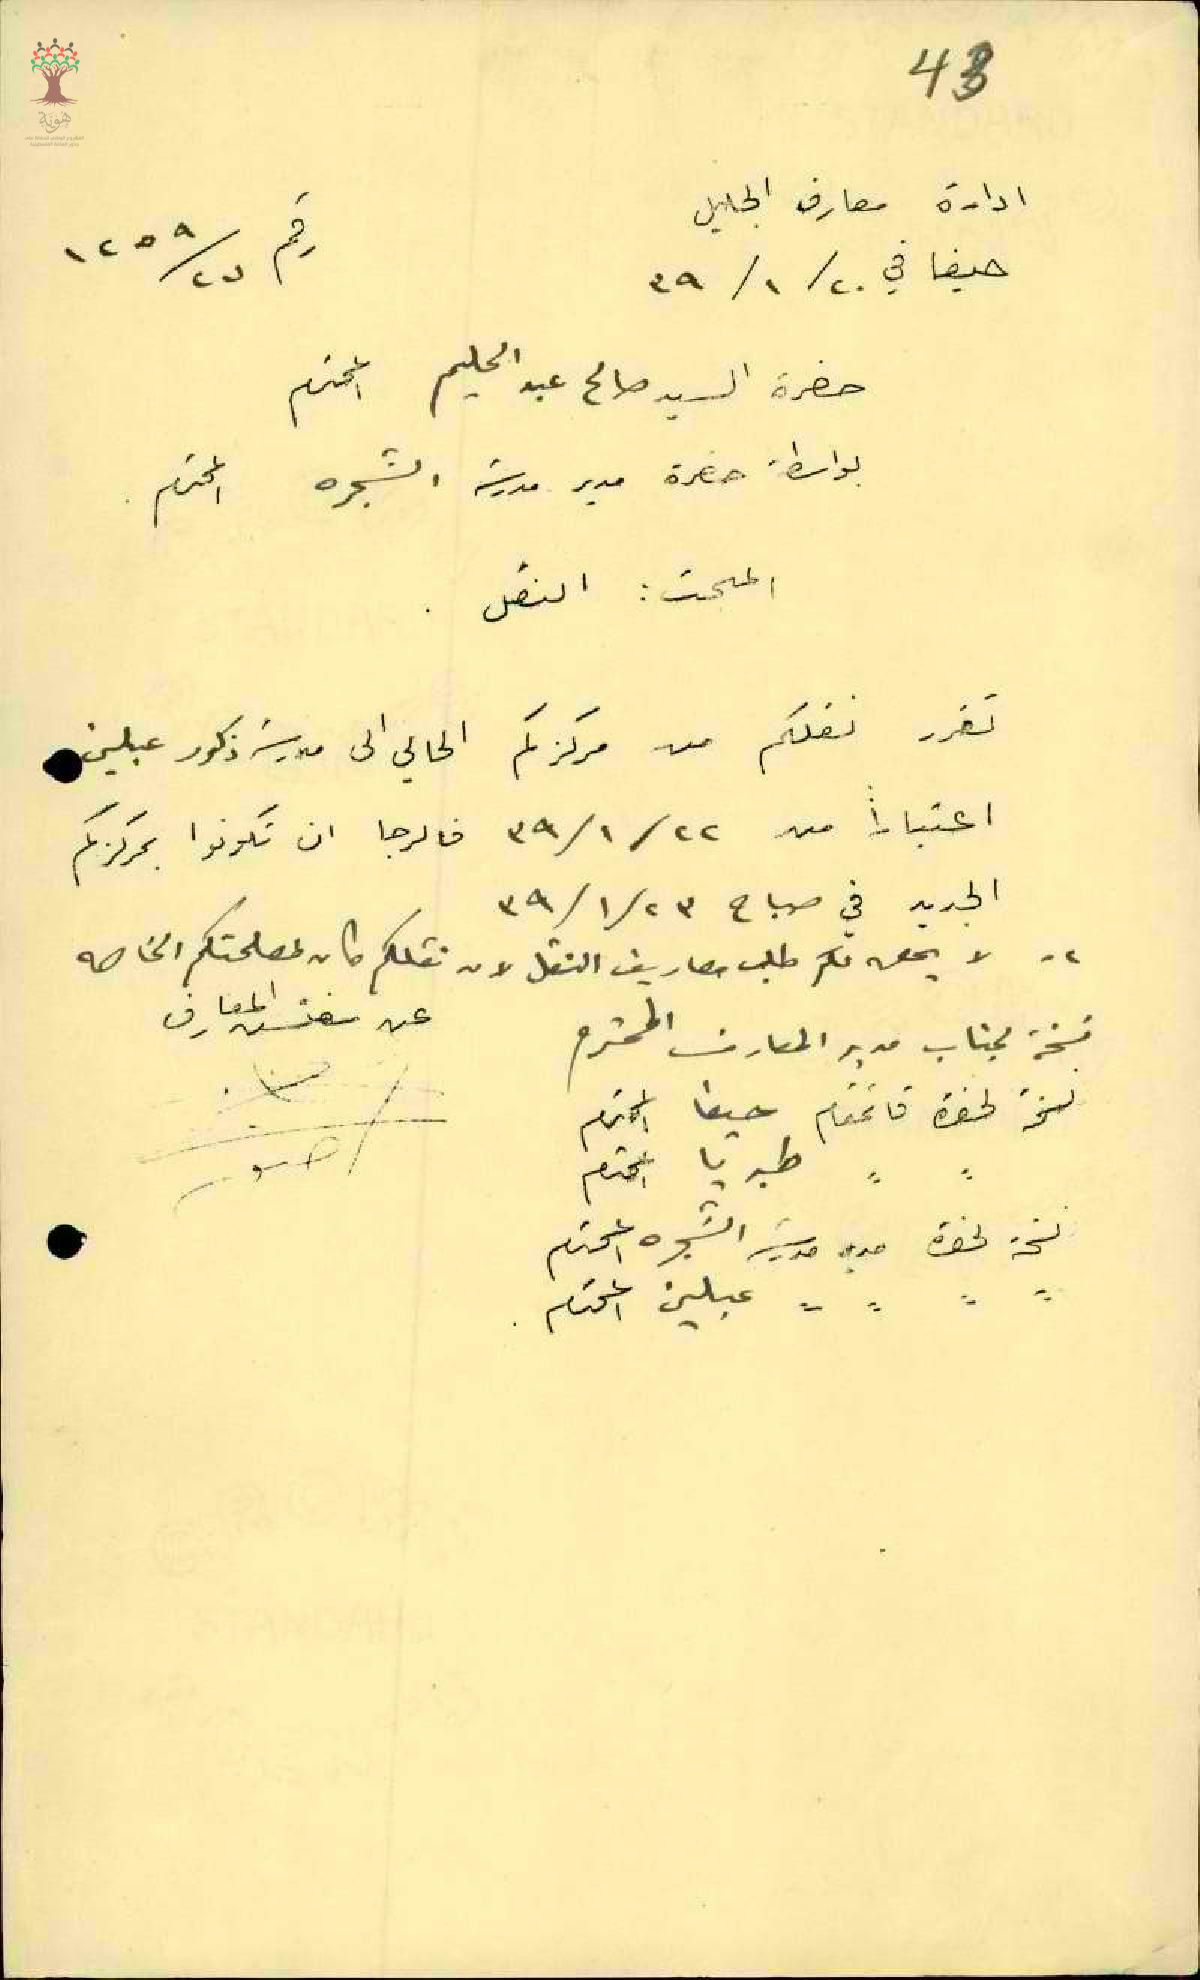 43
هوية
ادارة معارف الجليل
رقم ١٢٥٩/٢٥
حيفا في ٢٠/١/٣٩
حضرة السيد صالح عبد الحليم المحترم
بواسطة حضرة مدير مدرسة الشجره المحترم.
المبحث: النقل.
تقرر نقلكم من مركزكم الحالي الى مدرسة ذكور عبلين
اعتباراً من ٢٢/١/٣٩ فالرجا ان تكونوا بمركزكم
الجديد في صباح ٢٣/١/٣٩
٢- لا يحق لكم طلب مصاريف النقل لان نقلكم كان لمصلحتكم الخاصه
عن مفتش المعارف
نسخة لجناب مدير المعارف المحترم
نسخة لحضرة قائمقام حيفا المحترم
" " طبريا المحترم
نسخة لحضرة مدير مدرسة الشجره المحترم
" " " " عبلين المحترم.